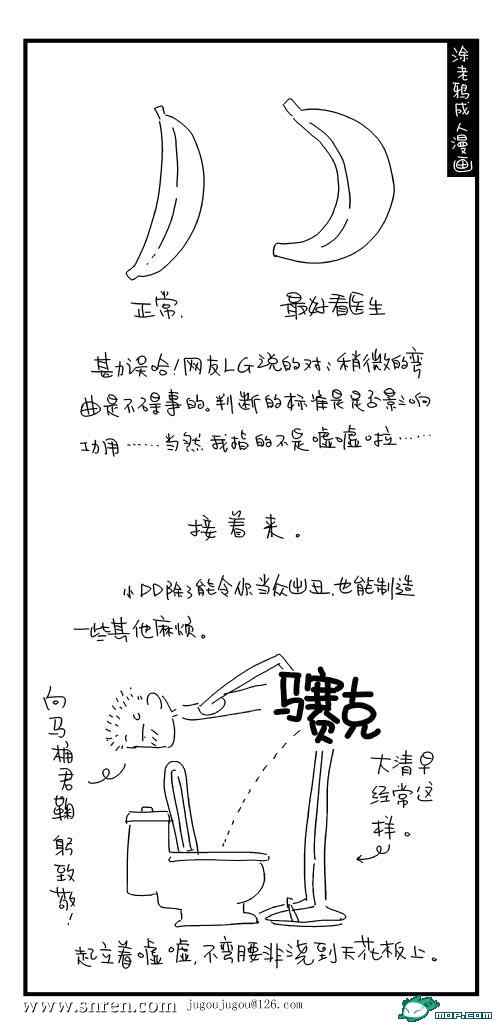 涂老鸦成人漫画
正常.
最好看医生
甚为误哈!网友LG说的对:稍微的弯
曲是不碍事的。判断的标准是是否影响
功用……当然我指的不是嘘嘘啦……
接着来。
小DD除了能令你当众出丑,也能制造
一些其他麻烦。
向马桶君鞠躬致敬!
马赛克
大清早
经常这
样。
起立着嘘嘘,不弯腰非浇到天花板上。
www.snren.com
jugoujugou@126.com
mop.com